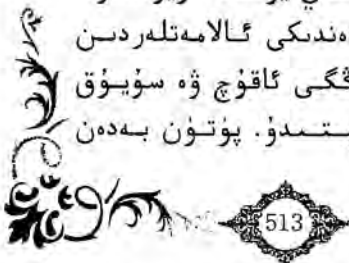 ەندىكى ئالامەتلەردىن
ڭگى ئاقۇچ ۋە سۇيۇق
ىتىدۇ. پۈتۈن بەدەن
513